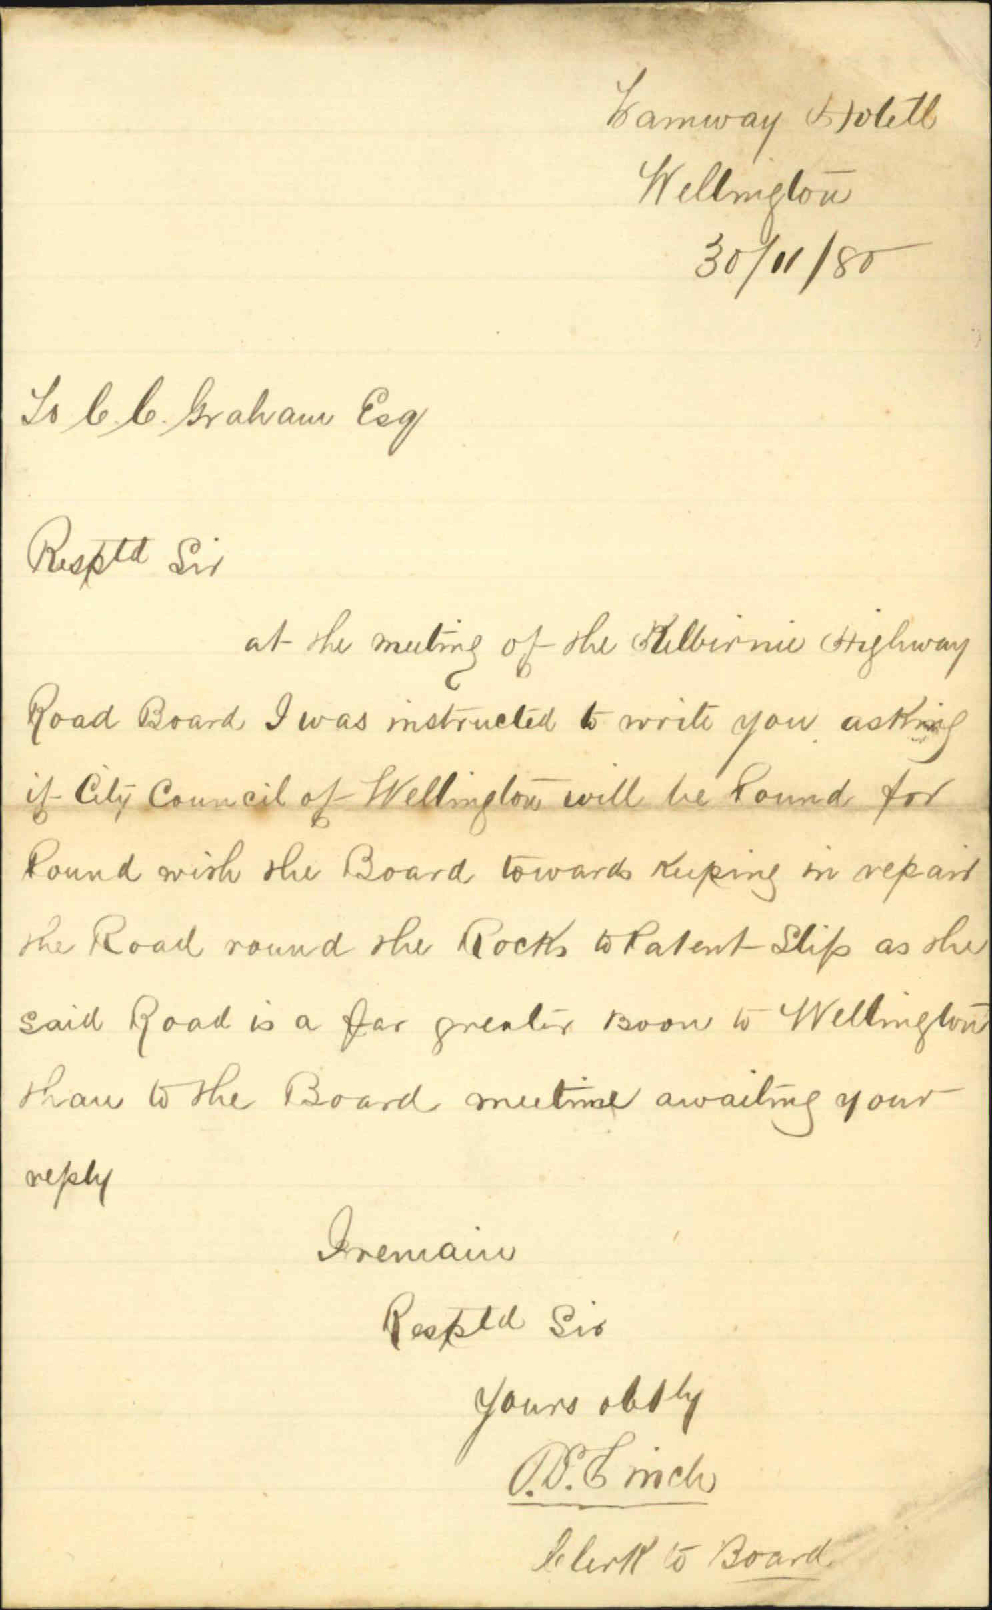 Tramway Hotell
Wellington
30/11/80
To C. C. Graham Esq
Ресptd Sir
at the meeting of the Kilbirnie Highway
Road Board I was instructed to write you asking
if City Council of Wellington will be Pound for
Pound with the Board towards keeping in repair
the Road round the Rocks to Patent Slip as the
said Road is a far greater Boon to Wellington
than to the Board meetime awaiting your
reply
I remain
Resptd Sir
Yours obtly
Finch
Clerk to Board